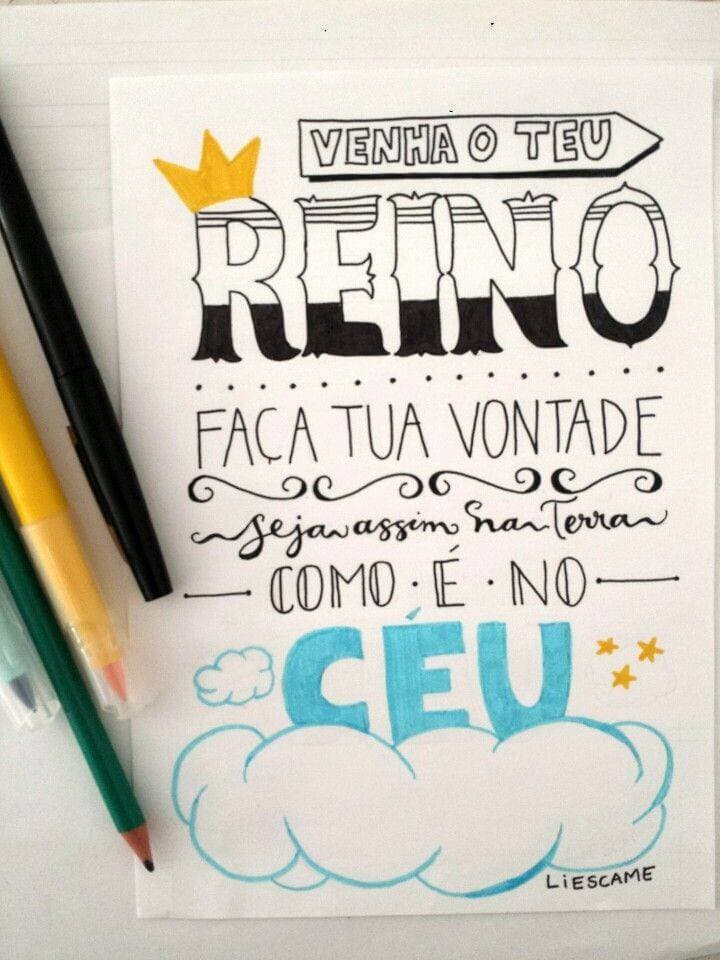 VENHA O TEU
REINO
FAÇA TUA VONTADE
seja assim na Terra
COMO · É · NO
CÉU
LiESCAME